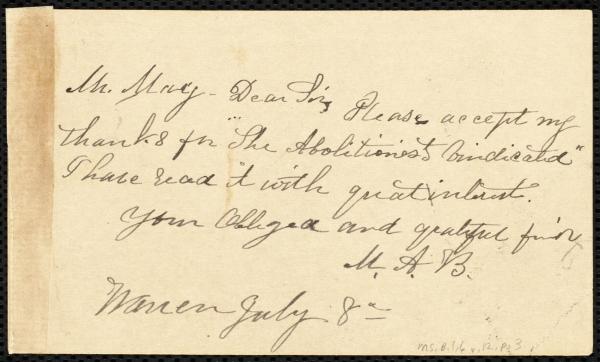 Mr. May - Dear Sir, Please accept my
thanks for "The Abolitionists Vindicated"
I have read it with great interest.
Your obliged and grateful friend
M. A. B.
Warren July 8th